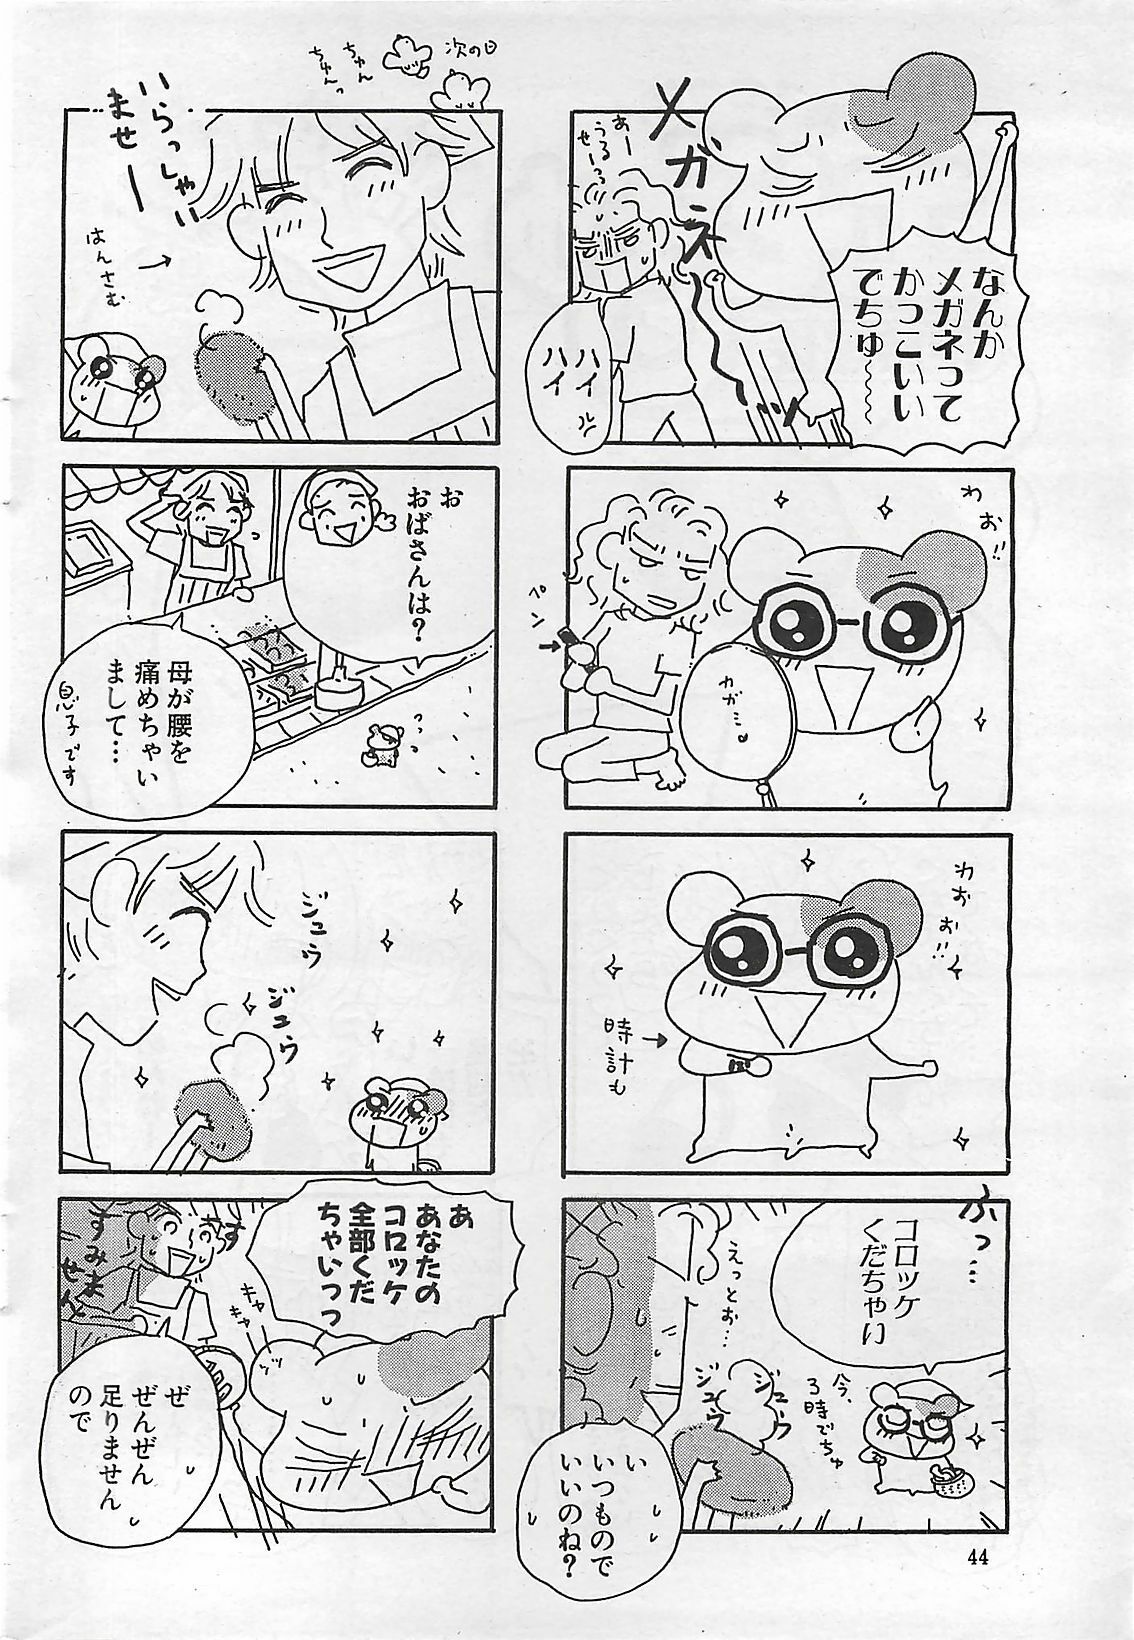 メガネ〜〜ッ
なんか
メガネって
かっこいい
でちゅ〜〜
あー
うるせーっ
ハイ
ハイ
わお!!
ペン→
わが…
わおお!!
時計も→
ふっ…
コロッケ
くだちゃい
今、
3時でちゅ
えっとぉ…
ジュウ
ジュウ
い
いつもので
いいのね?
次の日
ちゅん
ちゅんっ
いらっしゃい
ませー
はんさむ
→
お
おばさんは?
母が腰を
痛めちゃい
まして…
息子です
ジュウ
ジュウ
あ
あなたの
コロッケ
全部くだ
ちゃいっっ
キャ
キャ
す
すみま
せん
ぜ
ぜんぜん
足りません
ので
44